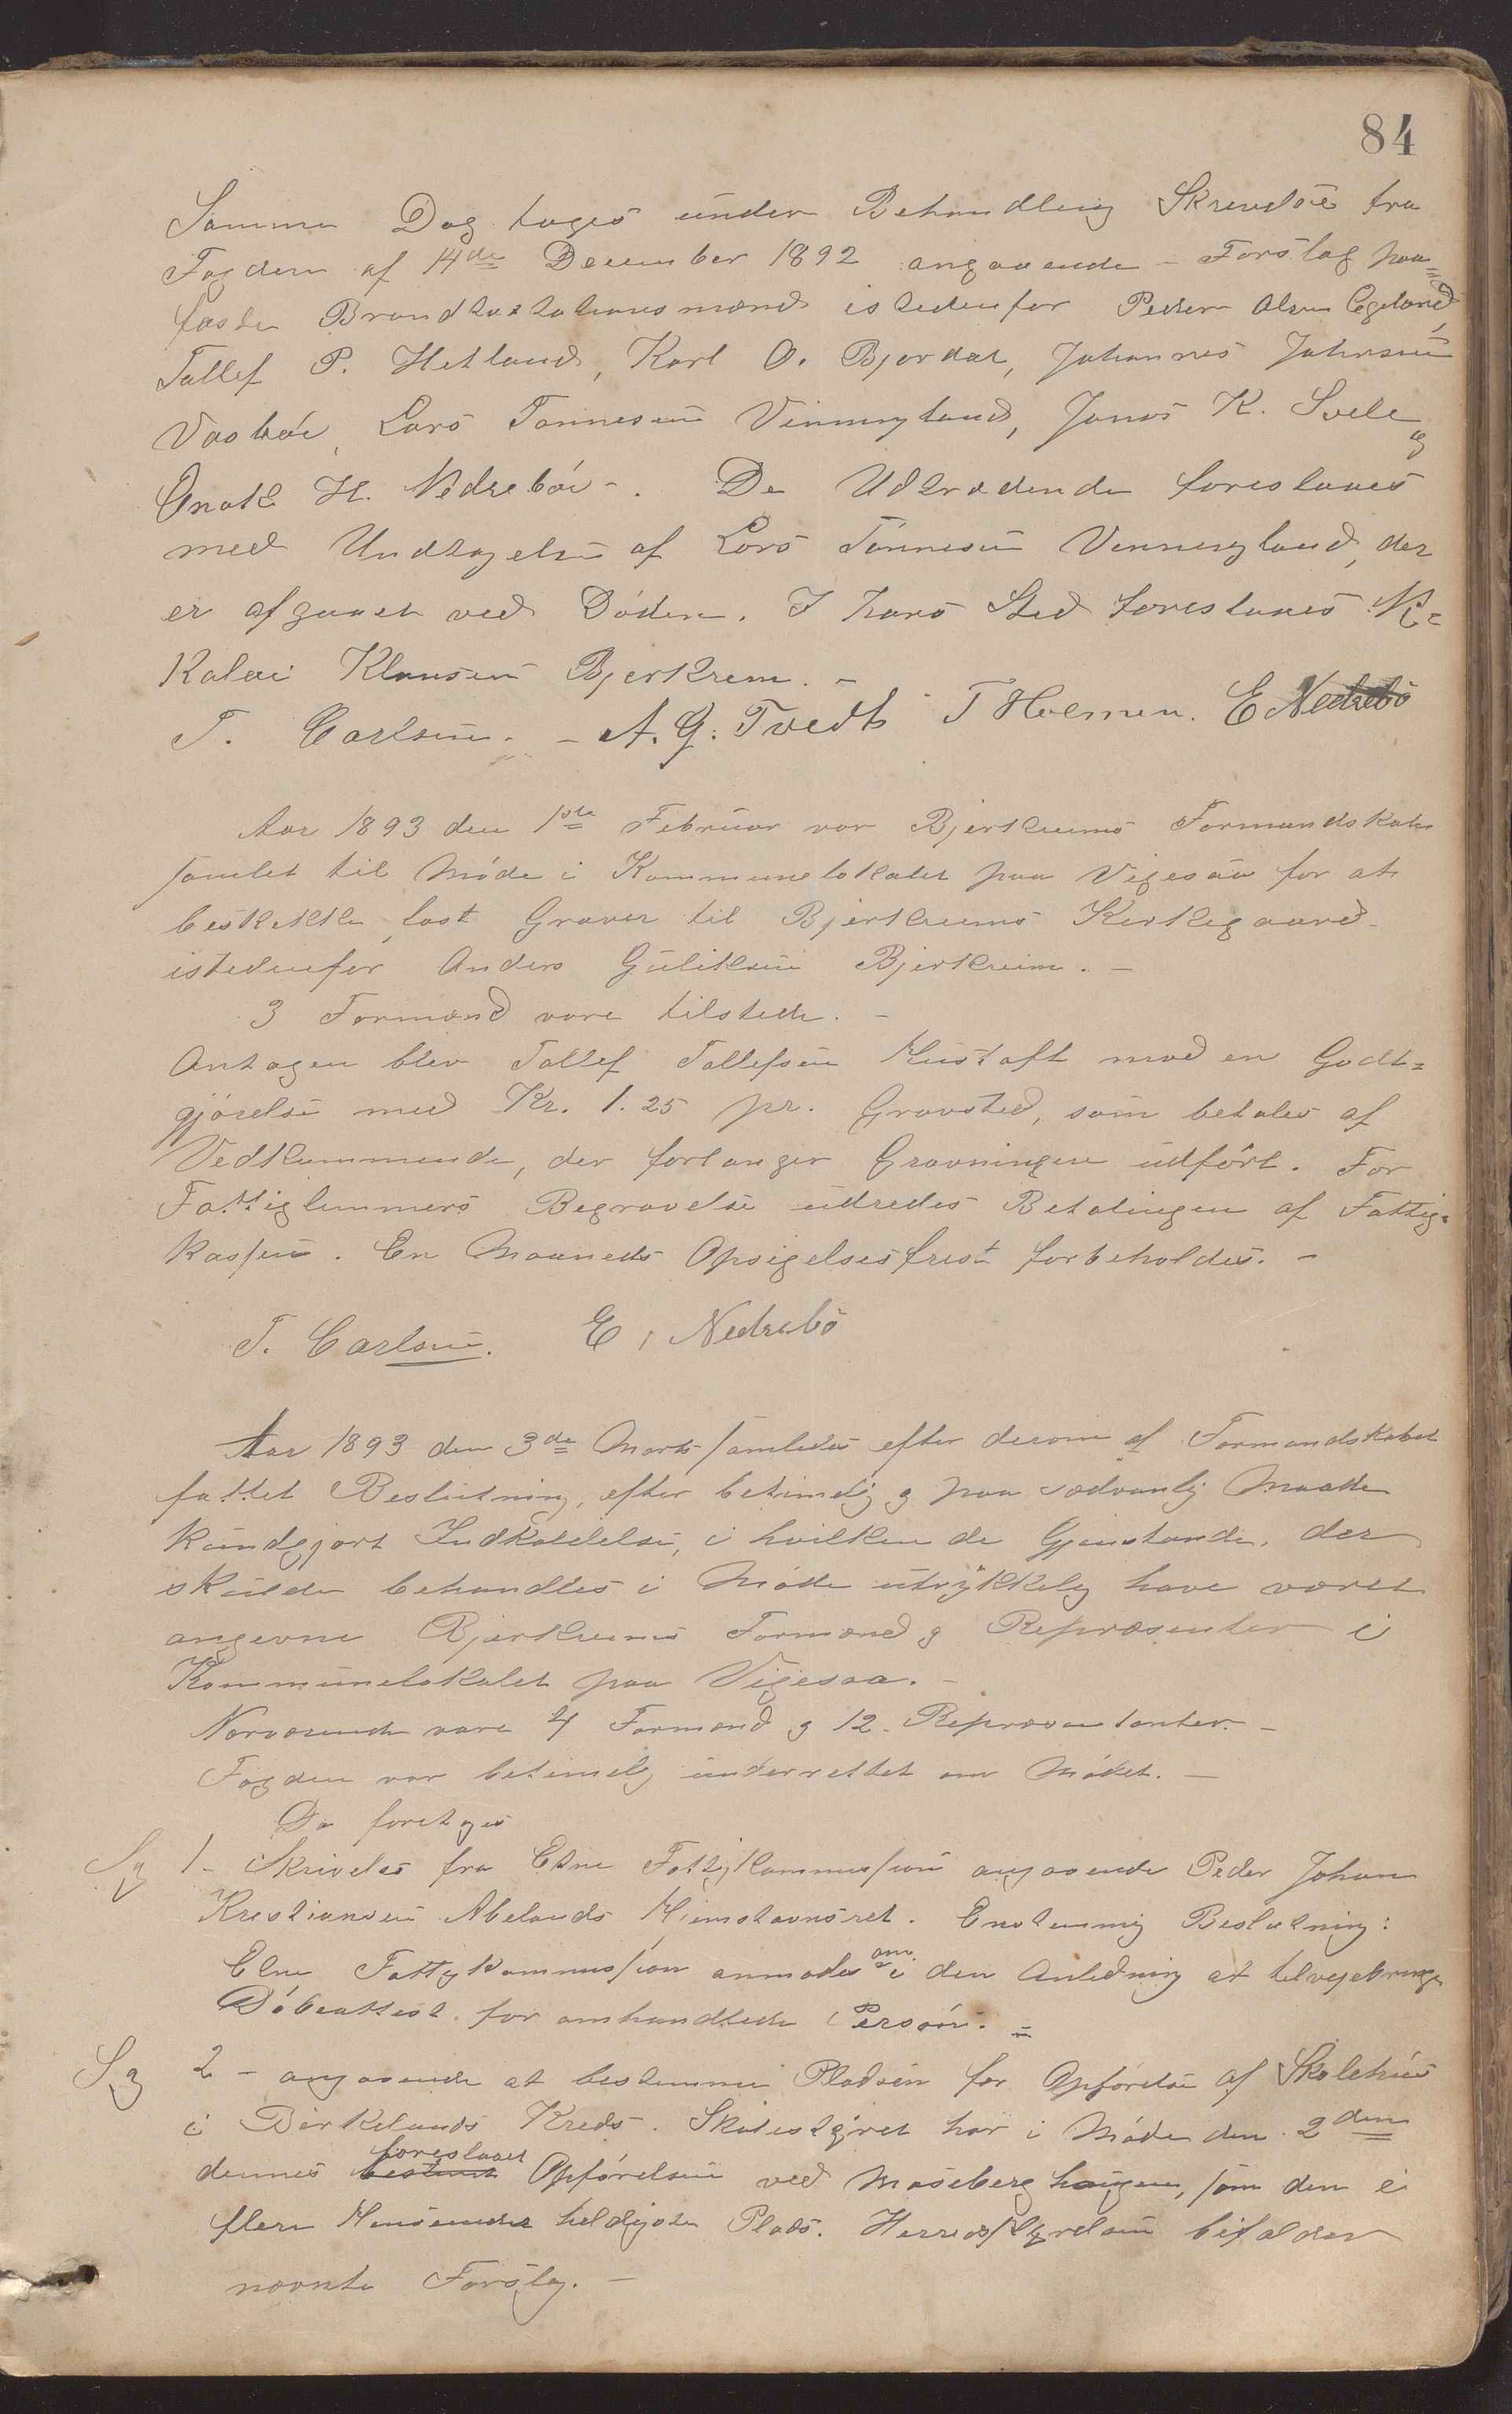 84
Samme Dag toges under Behandling Skrivelse fra
Fogden af 14de December 1892 angaaende Forslag paa
faste Brandtaxtationsmænd istedenfor Peder Olsen Egeland,
Tallef P. Hetland, Karl O. Bjordal, Johannes Johnsen
Vasbøe, Lars Tønnesen Vinningland, Jonas K. Svele og
Enok H. Nedrebøe. De Udtrædende foreslaaes
med Undtagelse af Lars Tønnesen Vinningland, der
er afgaaet ved Døden. I hans Sted foreslaaes Ni-
kolai Klausen Bjerkrem. -
T. Carlsen. - A. G. Tvedt T Holmen. E Nedrebø
Aar 1893 den 1ste Februar var Bjerkreims Formandskab
samlet til Møde i Kommunelokalet paa Vigesaa for at
beskikke fast Graver til Bjerkreims Kirkegaard
istedenfor Anders Guliksen Bjerkreim. -
3 Formænd vare tilstede. -
Antagen blev Tallef Tallefsen mod en Godt=
gjørelse med Kr. 1.25 pr. Gravsted, som betales af
Vedkommende, der forlanger Gravningen udført. For
Fattiglemmers Begravelse udredes Betalingen af Fattig=
kassen. En Maaneds Opsigelsesfrist forbeholdes. -
T. Carlsen. E. Nedrebø
Aar 1893 den 3de Marts samledes efter derom af Formandskabet
fattet Beslutning, efter betimelig og paa sædvanlig Maade
kundgjort Indkaldelse, i hvilken de Gjenstande, der
skulde behandles i Møde udtrykkelig have været
angivne Bjerkreims Formænd og Repræsenter i
Kommunelokalet paa Vigesaa. -
Nærværende vare 4 Formænd og 12 Repræsentanter. -
Fogden var betimelig underrettet om Mødet. -
Da foretoges
Sag 1 - Skrivelse fra Etne Fattigkommission angaaende Peder Johan
Kristiansen Abelands Hjemstavnsret. Enstemmig Beslutning:
Etne Fattigkommission anmodes om i den Anledning at tilvejebringe
Døbeattest for omhandlede Person. =
Sag 2 - angaaende at bestemme Pladsen for Opførelse af Skolehus
i Birkelands Kreds. Skolestyret har i Møde den 2den
dennes bestemt foreslaaet Opførelsen ved Maseberghaugen, som den i
flere Henseender heldigste Plads. Herredsstyrelsen bifalder
nævnte Forslag. -